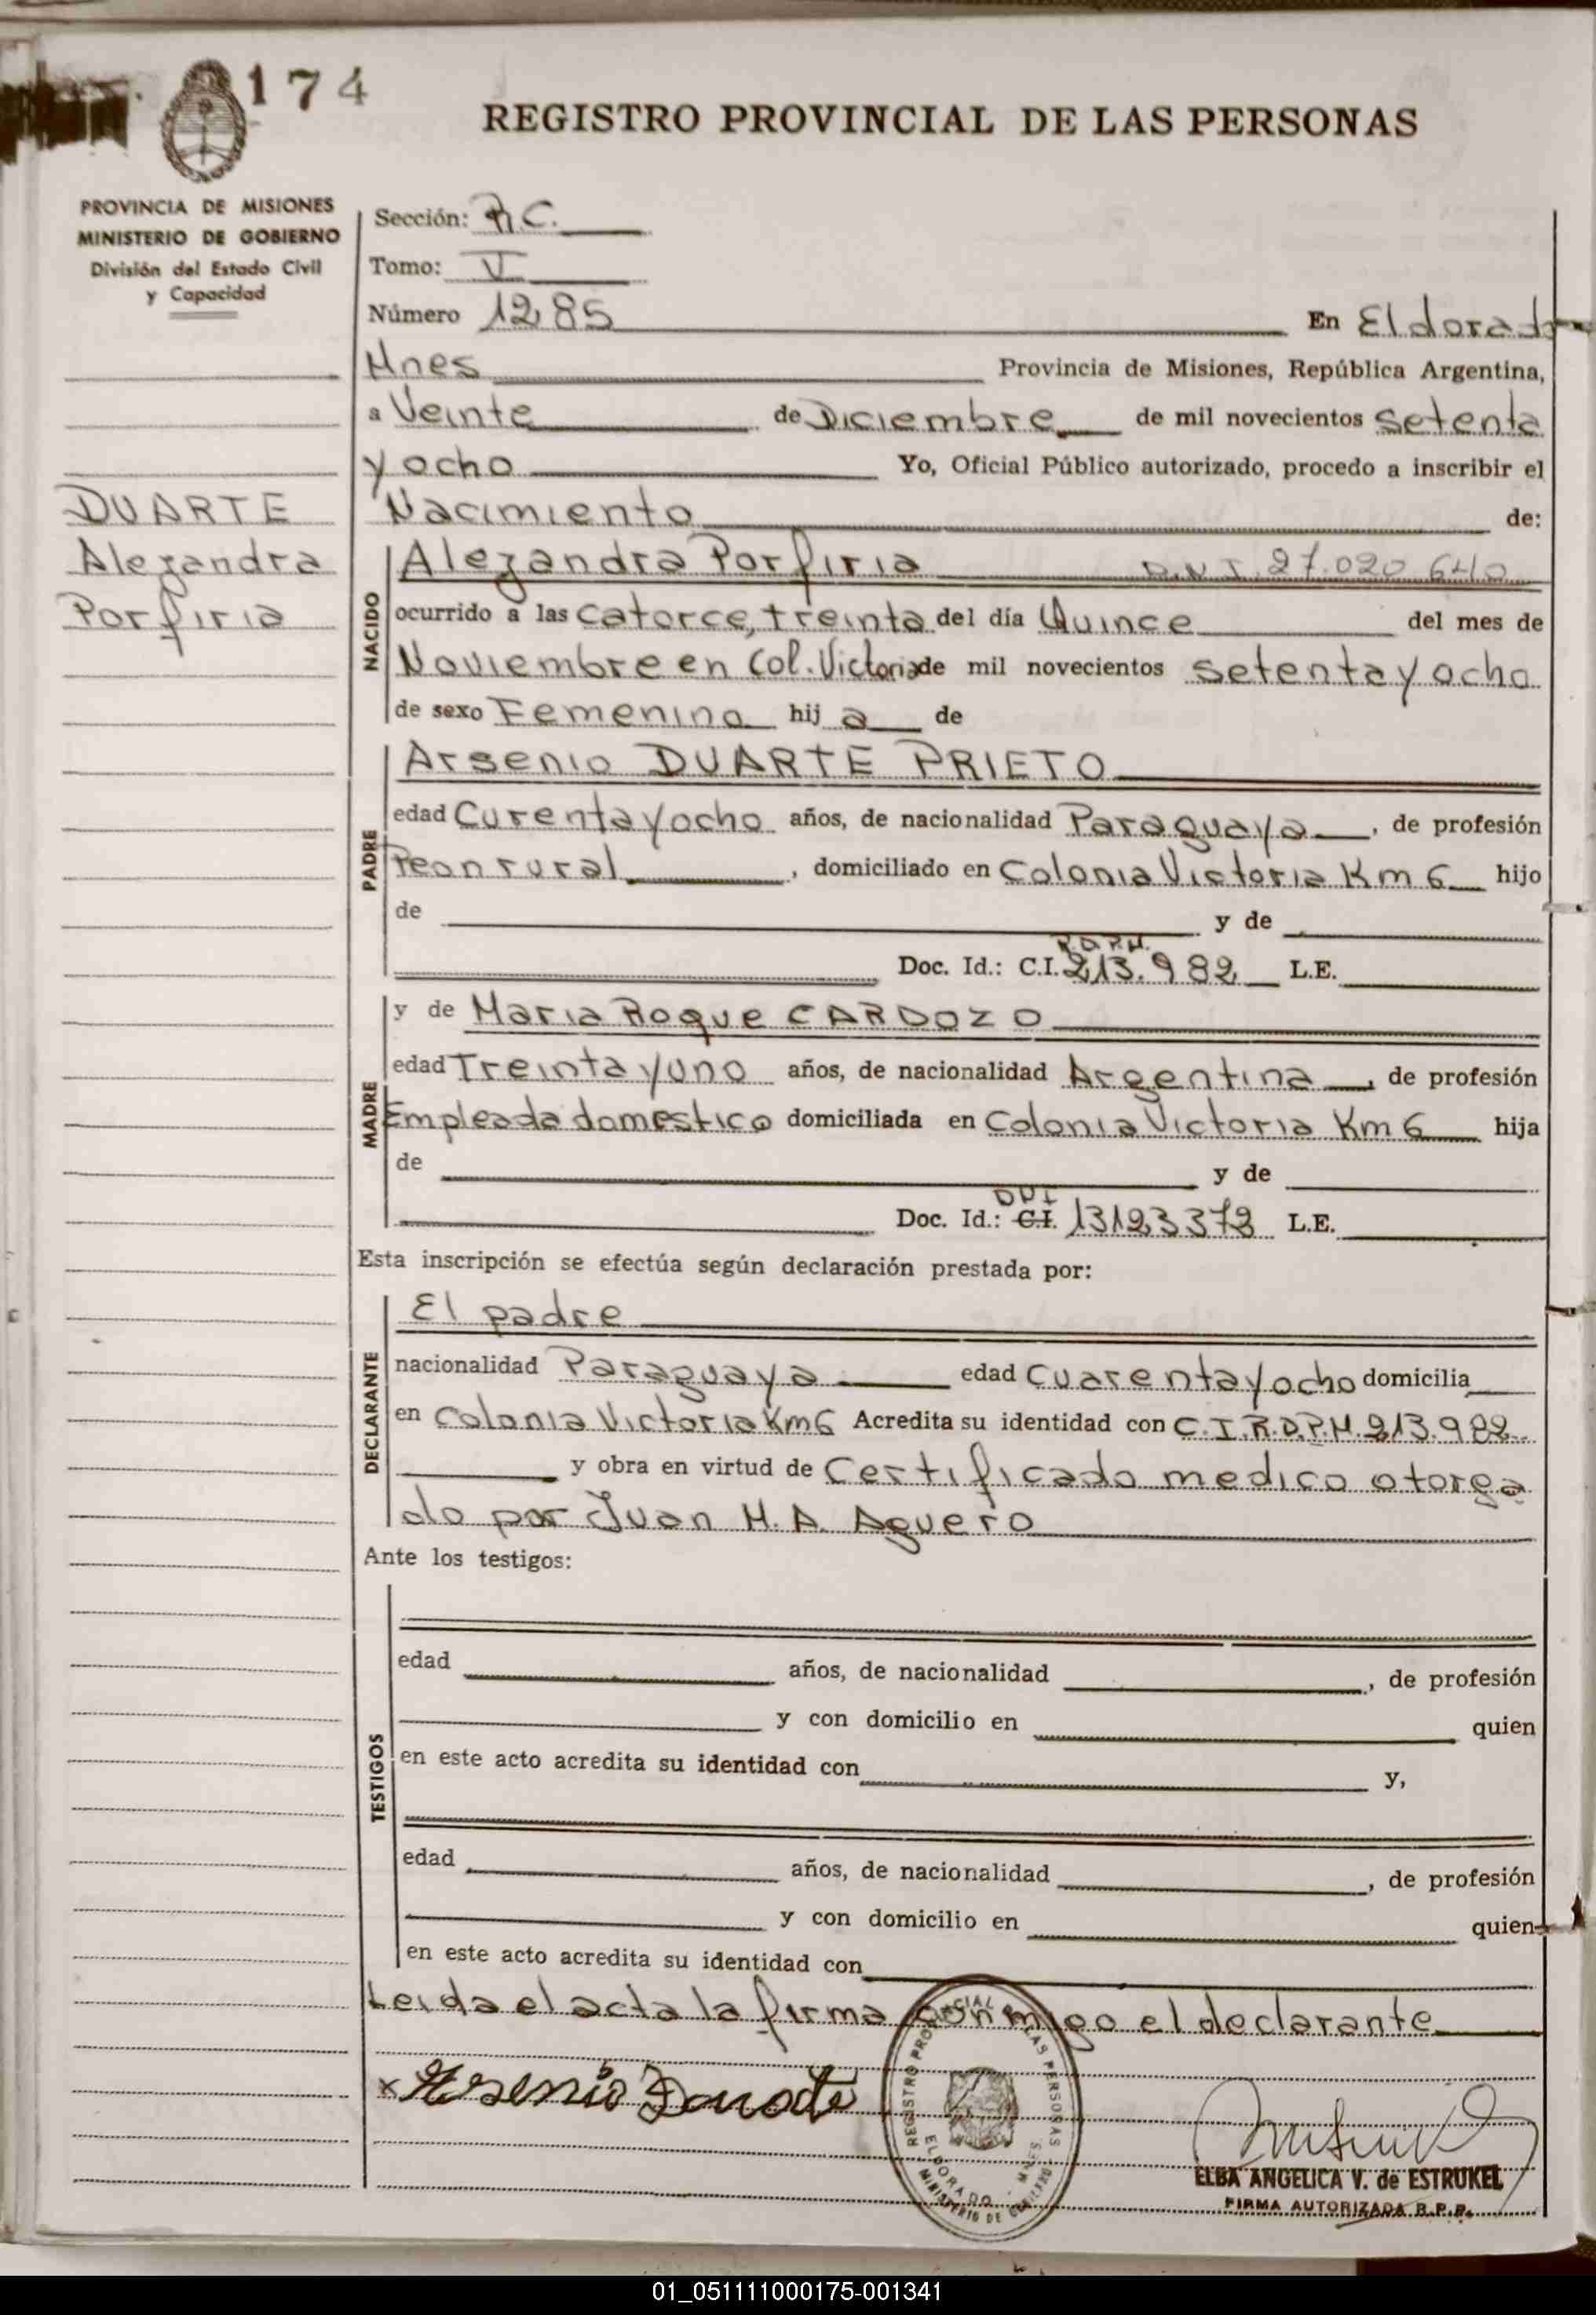 174
REGISTRO PROVINCIAL DE LAS PERSONAS
PROVINCIA DE MISIONES
MINISTERIO DE GOBIERNO
División del Estado Civil
y Capacidad
DUARTE
Alejandra
Porfiria
Sección: R.C.
Tomo: V
Número 1285 En Eldorado
Mnes Provincia de Misiones, República Argentina,
a Veinte de Diciembre de mil novecientos setenta
y ocho Yo, Oficial Público autorizado, procedo a inscribir el
Nacimiento de:
NACIDO
Alejandra Porfiria D.N.I. 27.020.640
ocurrido a las catorce, treinta del día Quince del mes de
Noviembre en Col. Victoria de mil novecientos setenta y ocho
de sexo Femenino hij a de
PADRE
Arsenio DUARTE PRIETO
edad Curenta y ocho años, de nacionalidad Paraguaya, de profesión
Peon rural, domiciliado en Colonia Victoria Km 6 hijo
de y de
R.D.P.M.
Doc. Id.: C.I. 213.982 L.E.
MADRE
y de Maria Roque CARDOZO
edad Treinta y uno años, de nacionalidad Argentina, de profesión
Empleada domestico domiciliada en Colonia Victoria Km 6 hija
de y de
DNI
Doc. Id.: C.I. 13123372 L.E.
Esta inscripción se efectúa según declaración prestada por:
DECLARANTE
El padre
nacionalidad Paraguaya edad Cuarenta y ocho domicilia
en Colonia Victoria Km 6 Acredita su identidad con C.I.R.D.P.M. 213.982
y obra en virtud de Certificado medico otorga
do por Juan M. A. Aguero
Ante los testigos:
TESTIGOS
edad años, de nacionalidad , de profesión
y con domicilio en quien
en este acto acredita su identidad con y,
edad años, de nacionalidad , de profesión
y con domicilio en quien
en este acto acredita su identidad con
Leida el acta la firma conmigo el declarante
x Arsenio Duarte
REGISTRO PROVINCIAL DE LAS PERSONAS
ELDORADO - MNES.
MINISTERIO DE GOBIERNO
ELBA ANGELICA V. de ESTRUKEL
FIRMA AUTORIZADA R.P.P.
01_051111000175-001341